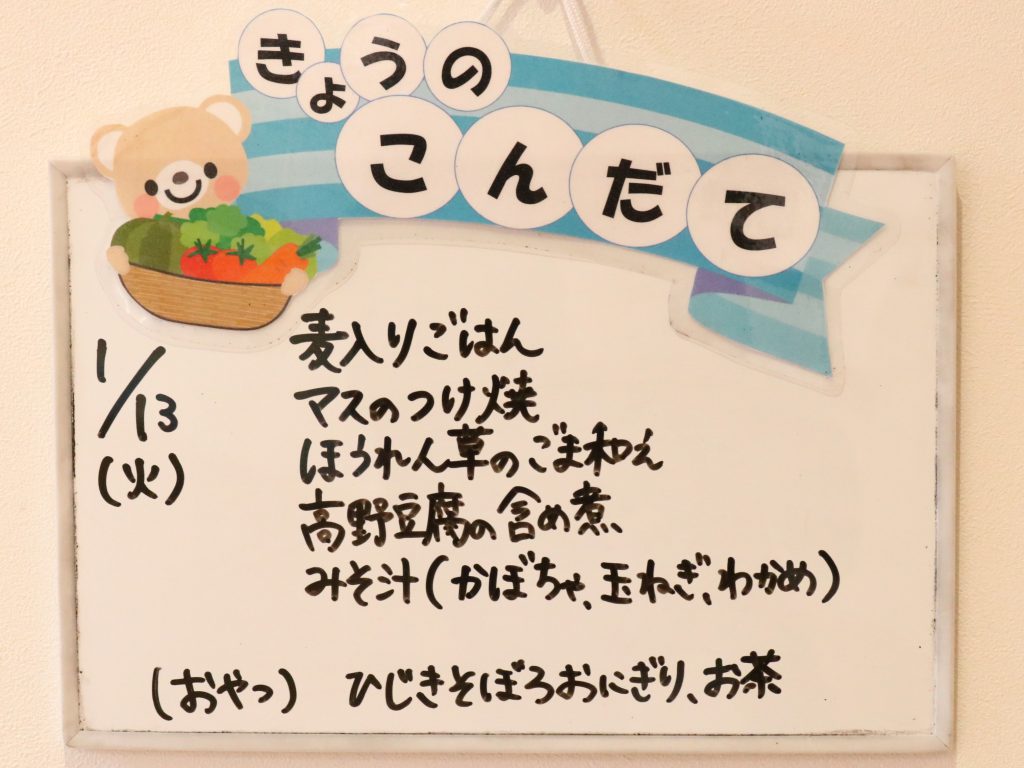 きょうの
こんだて
1/13
(火)
麦入りごはん
マスのつけ焼
ほうれん草のごま和え
高野豆腐の含め煮
みそ汁(かぼちゃ、玉ねぎ、わかめ)
(おやつ) ひじきそぼろおにぎり、お茶